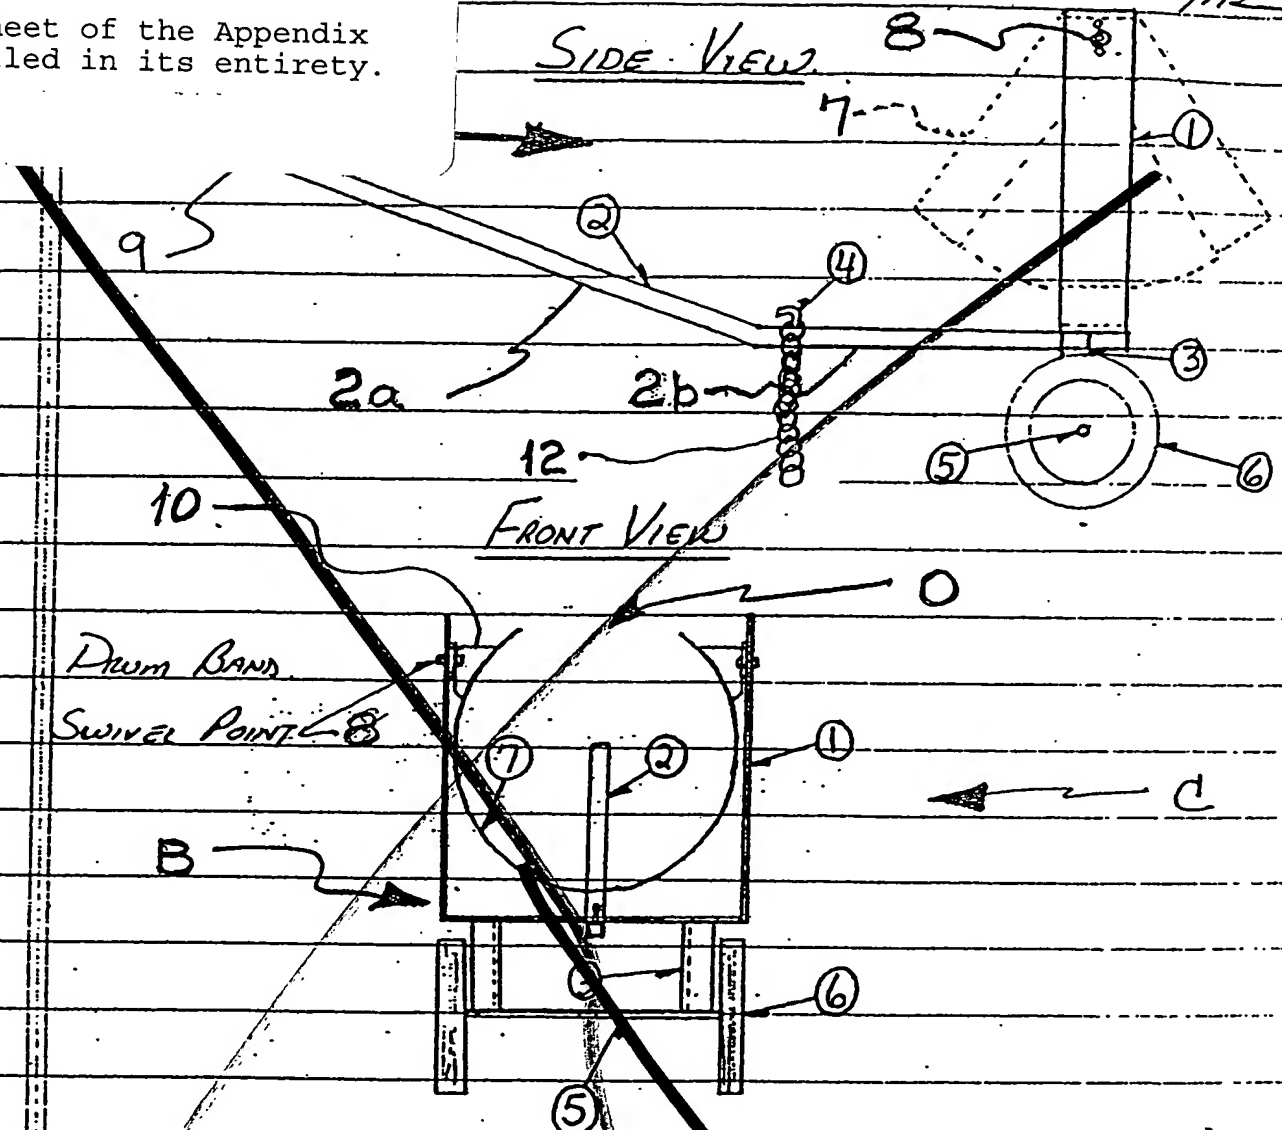 heet of the Appendix
lled in its entirety.
SIDE VIEW
8
7
1
9
2
4
3
2a
2b
12
5
6
10
FRONT VIEW
O
DRUM BAND
SWIVEL POINT 8
7
2
1
C
B
6
5